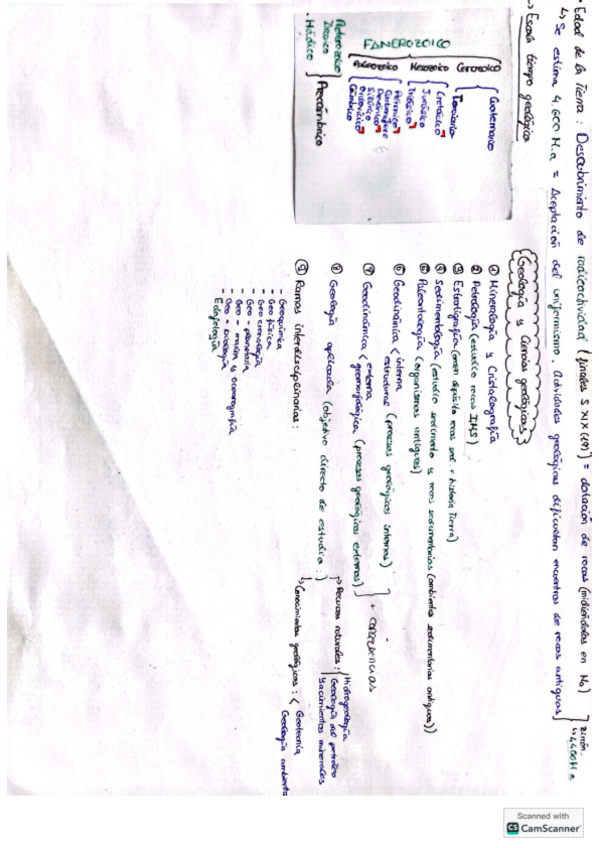 · Edad de la Tierra: Descubrimiento de radioactividad (finales S XIX (US)) = datación de rocas (midiéndolas en Ma)
↳ Se estima 4.600 M.a = Aceptación del uniformismo. Actividades geológicas dificultan encuentros de rocas antiguas]
zircón.
↳ 4.400 M.a
→ Escala tiempo geológico
Cuaternario
Terciario
Cenozoico
Cretácico
Jurásico
Triásico
Mesozoico
Pérmico
Carbonífero
Devónico
Silúrico
Ordovícico
Cámbrico
Paleozoico
FANEROZOICO
Proterozoico
Arcaico
· Hádico
Precámbrico
Geología y Ciencias geológicas
① Mineralogía y Cristalografía
② Petrología (estudio rocas IMS)
③ Estratigrafía (orden depósito rocas sed. e historia Tierra)
④ Sedimentología (estudio sedimento y rocas sedimentarias (ambientes sedimentarios antiguos))
⑤ Paleontología (organismos antiguos)
⑥ Geodinámica < interna
estructural (procesos geológicos internos)
⑦ Geodinámica < externa
geomorfológica (procesos geológicos externos)
+ consecuencias
⑧ Geología aplicada (objetivo directo de estudio:)
↳ Recursos naturales:
Hidrogeología
Geología del petróleo
Yacimientos minerales
↳ Conocimientos geológicos: <
Geotecnia
Geología ambiental
⑨ Ramas interdisciplinarias:
- Geoquímica
- Geo física
- Geo cronología
- Geo - planetaria
- Geo - marina y oceanografía
- Geo - biología
- Edafología
Scanned with
CS CamScanner